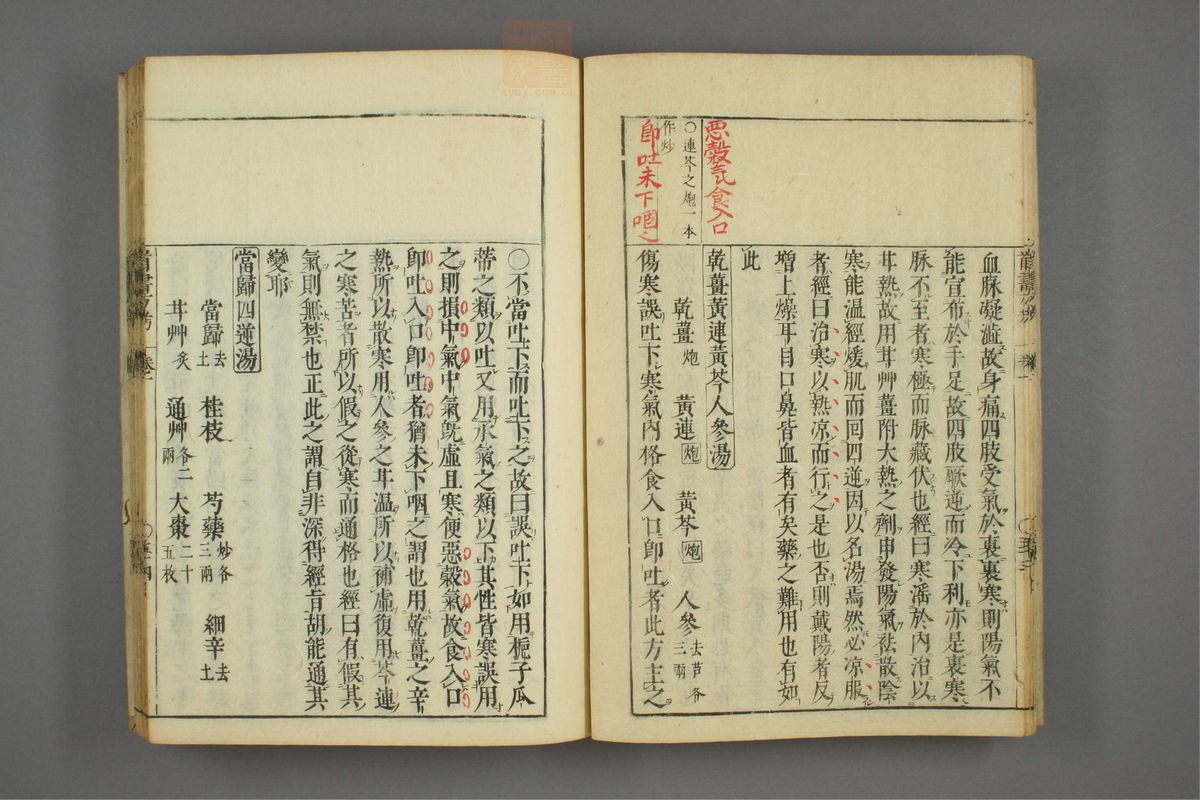 惡穀氣食入口
即吐未下咽之
○連芩之炮一本
作炒
血脉凝澁故身痛四肢受氣於裏裏寒則陽氣不
能宣布於手足故四肢厥逆而冷下利亦是裏寒
脉不至者寒極而脉藏伏也經曰寒滛於內治以
苷熱故用苷艸薑附大熱之劑申發陽氣祛散陰
寒能温經煖肌而囘四逆因以名湯焉然必凉服
者經曰治寒以熱凉而行之是也否則戴陽者反
增上燥耳目口鼻皆血者有矣藥之難用也有如
此
乾薑黃連黃芩人參湯
乾薑炮 黃連炮 黃芩炮 人參去芦各三兩
傷寒誤吐下寒氣內格食入口即吐者此方主之
○不當吐下而吐下之故曰誤吐下如用梔子瓜
蒂之類以吐又用承氣之類以下其性皆寒誤用
之則損中氣中氣旣虛且寒便惡穀氣故食入口
即吐入口即吐者猶未下咽之謂也用乾薑之辛
熱所以散寒用人參之苷温所以補虛復用芩連
之寒苦者所以假之從寒而通格也經曰有假其
氣則無禁也正此之謂自非深得經肯胡能通其
變耶
當歸四逆湯
當歸去土 桂枝 芍藥炒各三兩 細辛去土
苷艸炙 通艸各二兩 大棗二十五枚